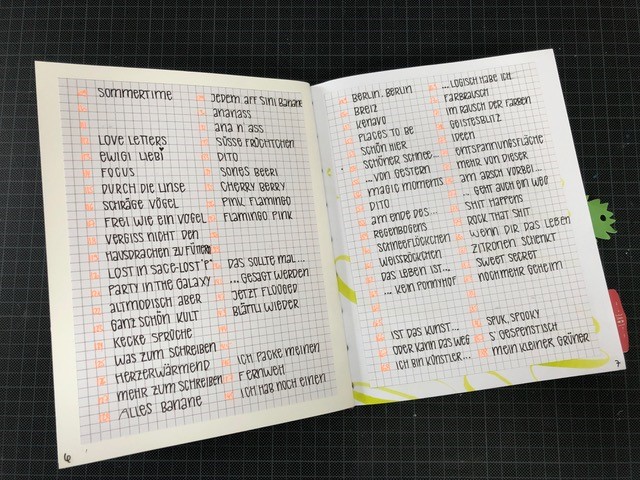 sommertime
LOVE LETTERS
EWIGI LIEBI
FOCUS
DURCH DIE LINSE
SCHRÄGE VÖGEL
FREI WIE EIN VOGEL
VERGISS NICHT DEN
HAUSDRACHEN ZU FÜTTERN
LOST IN SPACE-LOST"P"
PARTY IN THE GALAXY
ALTMODISCH ABER
GANZ SCHÖN KULT
KECKE SPRÜCHE
WAS ZUM SCHREIBEN
HERZERWÄRMEND
MEHR ZUM SCHREIBEN
ALLES BANANE
JEDEM ART SINI BANANE
ANANASS
ANA N' ASS
SÜSSE FRÜCHTCHEN
DITO
SONES BEERI
CHERRY BERRY
PINK FLAMINGO
FLAMINGO PINK
DAS SOLLTE MAL...
...GESAGT WERDEN
JETZT FLÜGED
BLÄTTLI WIEDER
ICH PACKE MEINEN
FERNWEH
ICH HAB NOCH EINEN
6
BERLIN, BERLIN
BREIZ
KENAVO
PLACES TO BE
SCHÖN HIER
SCHÖNER SCHNEE...
...VON GESTERN
MAGIC MOMENTS
DITO
AM ENDE DES...
REGENBOGENS
SCHNEEFLÖCKCHEN
WEISSRÖCKCHEN
DAS LEBEN IST...
... KEIN PONNYHOF
IST DAS KUNST...
ODER KANN DAS WEG
ICH BIN KÜNSTLER...
...LOGISCH HABE ICH
FARBRAUSCH
IM RAUSCH DER FARBEN
GEISTESBLITZ
IDEEN
ENTSPANNUNGSFLÄCHE
MEHR VON DIESER
AM ARSCH VORBEI...
... GEHT AUCH EIN WEG
SHIT HAPPENS
ROCK THAT SHIT
WENN DIR DAS LEBEN
ZITRONEN SCHENKT
SWEET SECRET
NOCH MEHR GEHEIM
SPUK, SPOOKY
S' GESPENSTISCH
MEIN KLEINER GRÜNER
7